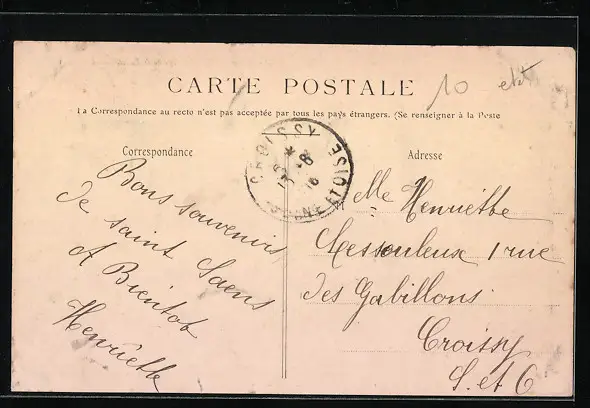 10 etat
CARTE POSTALE
La Correspondance au recto n'est pas acceptée par tous les pays étrangers. (Se renseigner à la Poste
Correspondance
Bons souvenirs
de saint Saens
A Bientot
Henriette
CROISSY
SEINE ET OISE
Adresse
Melle Henriette
1 rue
des Gabillons
Croissy
S. et O